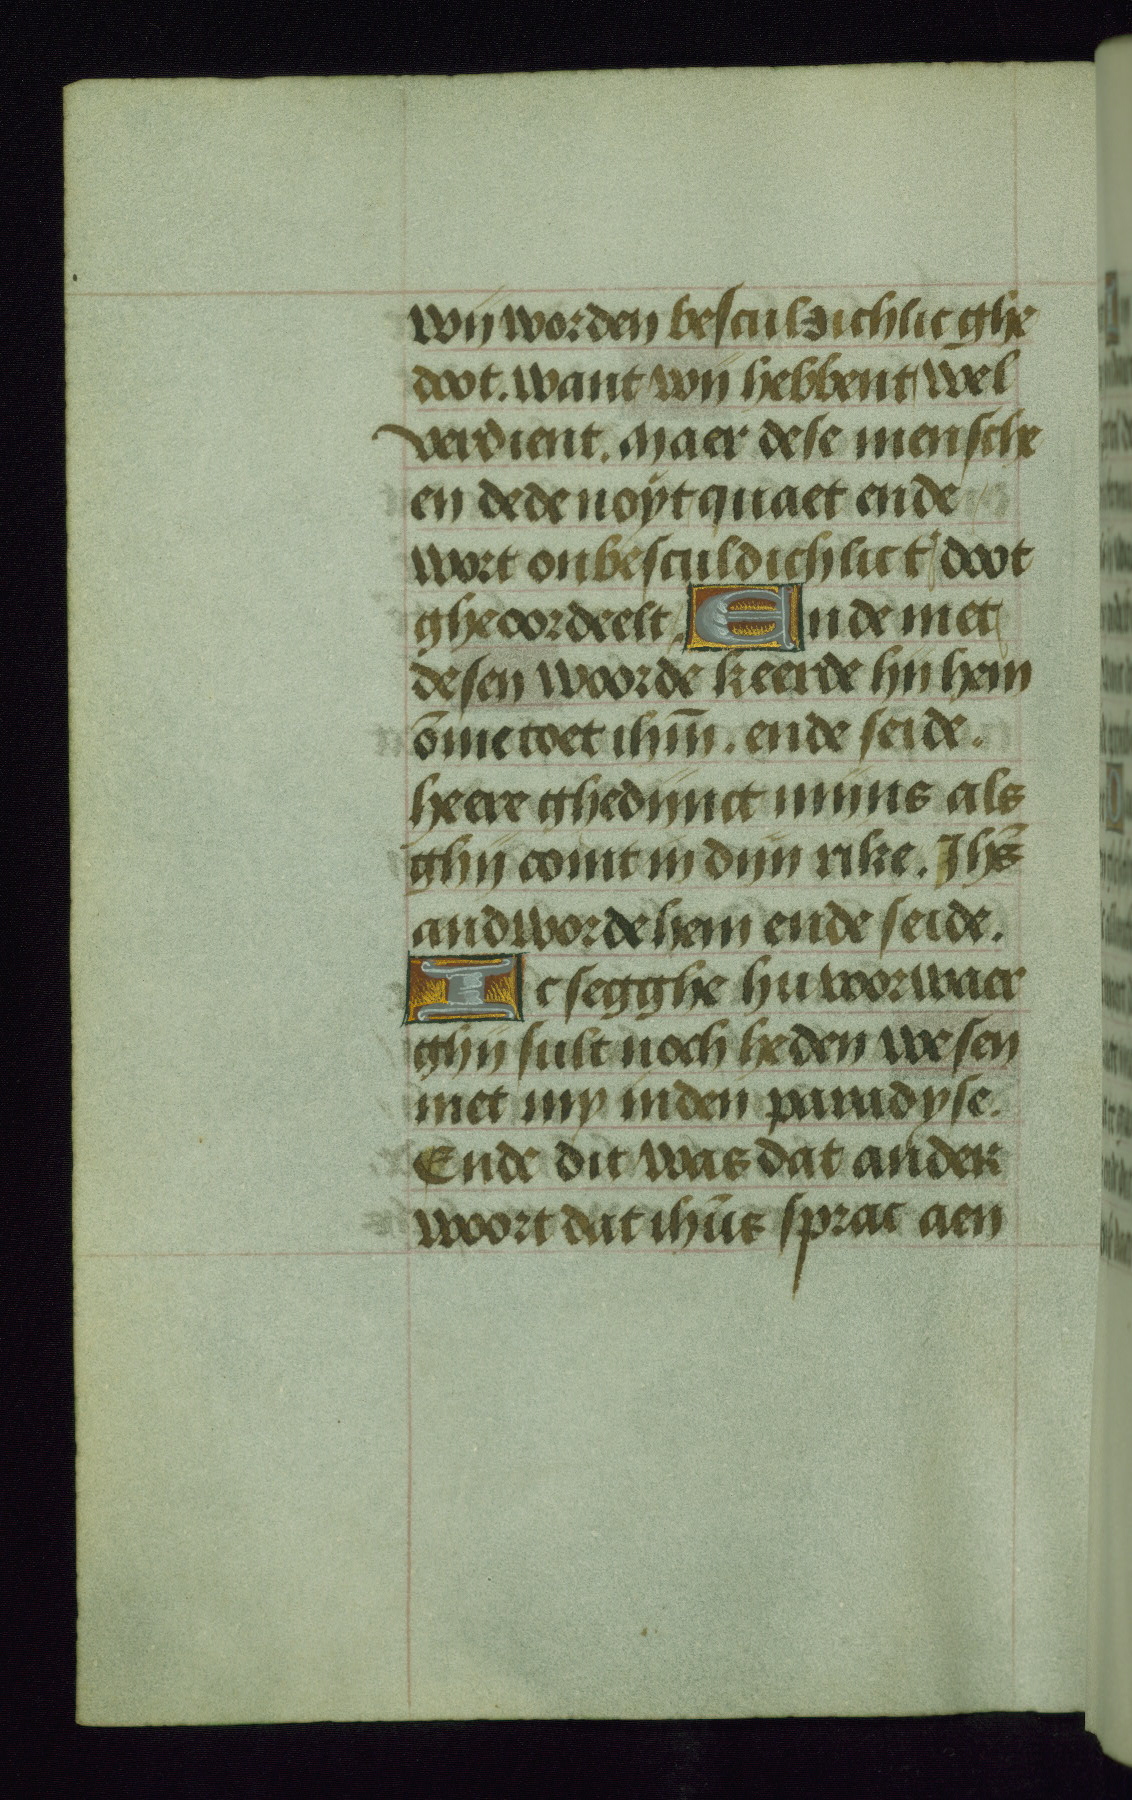 wij worden besculdichlic ghe
doot. want wij hebbent wel
verdient. Maer dese mensche
en dede noyt quaet ende
wort onbesculdichlic t doot
gheoordeelt. Ende met
desen woorde keerde hij hem
ōme toet ihm̄. ende seide.
heere ghedijnct mijns als
ghij comt in dijn rike. Ihs̄
andworde hem ende seide.
Ic segghe hu voorwaer
ghij sult noch heden wesen
met my inden paradyse.
Ende dit was dat ander
woort dat ihūs sprac aen